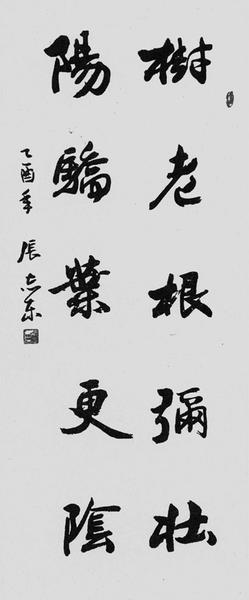 樹老根彌壯
陽驕葉更陰
乙酉年 张志东